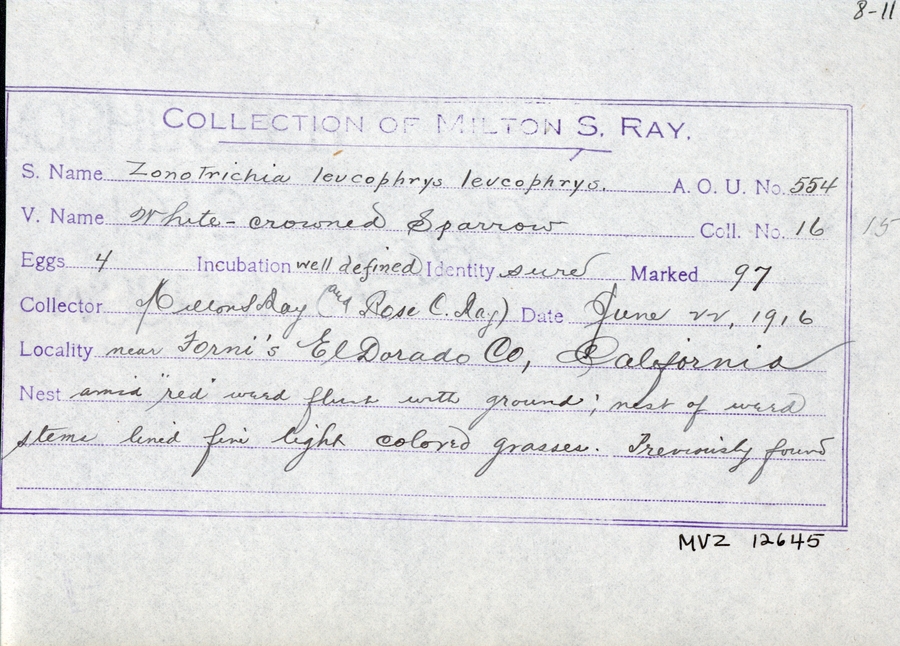 8-11
COLLECTION OF MILTON S. RAY.
S. Name Zonotrichia leucophrys leucophrys. A. O. U. No. 554
V. Name White-crowned Sparrow Coll. No. 16 15
Eggs 4 Incubation well defined Identity sure Marked 97
Collector Milton S Ray (and Rose C. Ray) Date June 22, 1916
Locality near Forni's El Dorado Co, California
Nest amid "red" weed flush with ground; nest of weed
stems lined fine light colored grasses. Previously found
MVZ 12645